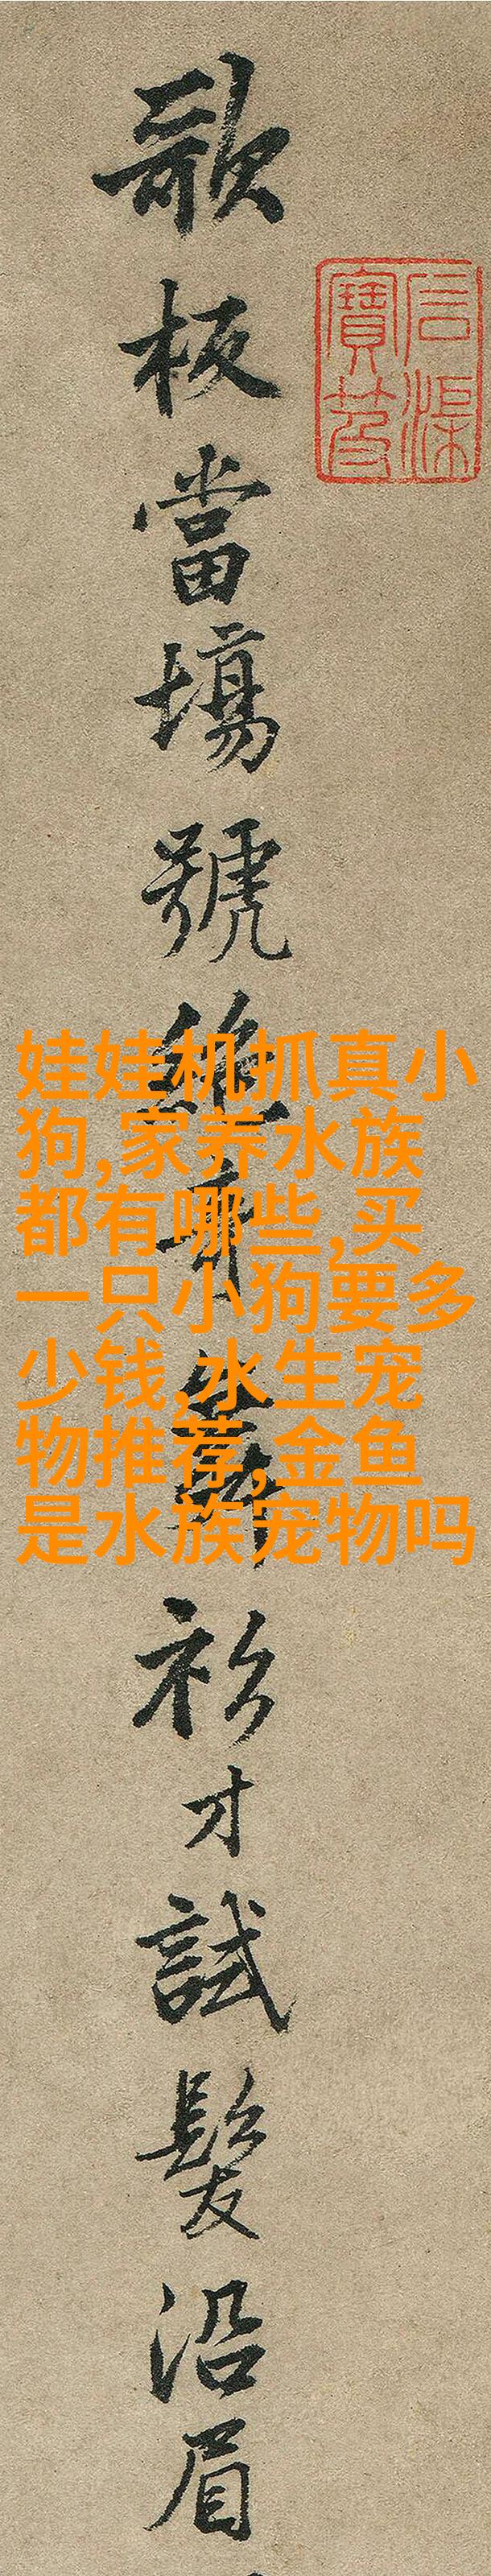 石渠
寶笈
歌板當場號絕奇舞衫才試髮沿眉
娃娃机抓真小
狗,家养水族
都有哪些,买
一只小狗要多
少钱,水生宠
物推荐,金鱼
是水族宠物吗